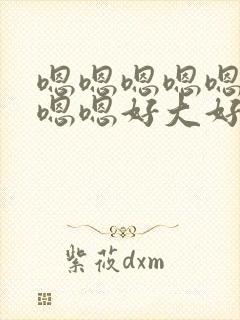 嗯嗯嗯嗯嗯
嗯嗯好大好
紫莜dxm